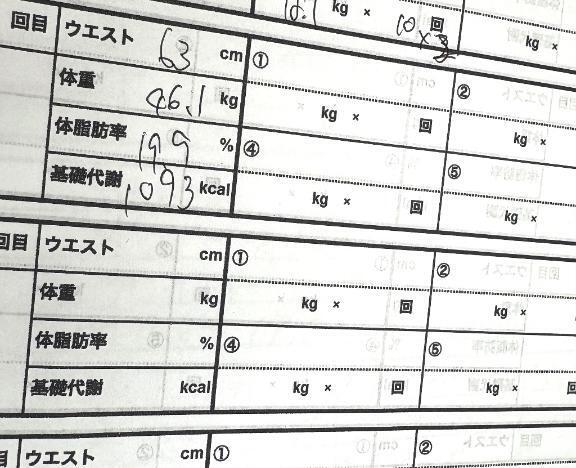 kg × 10×3 回 kg ×
回目 ウエスト 63 cm ①
体重 46.1 kg kg × 回 ② kg ×
体脂肪率 19.9 % ④
基礎代謝 1,093 kcal kg × 回 ⑤ kg ×
回目 ウエスト cm ① ②
体重 kg kg × 回 kg ×
体脂肪率 % ④ ⑤
基礎代謝 kcal kg × 回 kg × 回
ウエスト cm ① ②